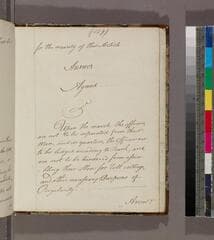 for the necessity of this Article
Answer
Agreed
5
Upon the march the officers
are not to be separated from their
Men, and in quarters the officers are
to be lodged according to Rank, and
are not to be hindered from assem
bling their Men for Roll calling,
& other necessary Purposes of
Regularity.
Answer